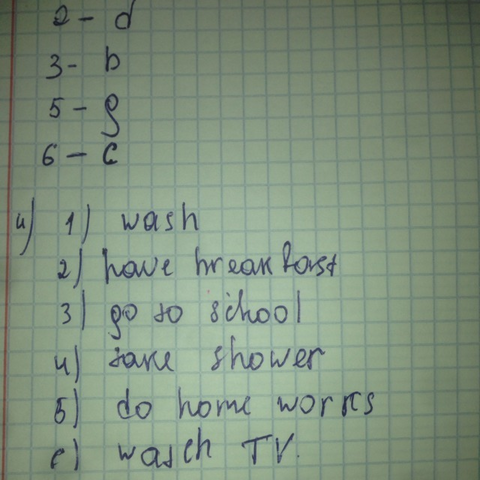 2 - d
3 - b
5 - g
6 - c
4) 1) wash
2) have breakfast
3) go to school
4) take shower
5) do home works
6) watch TV.